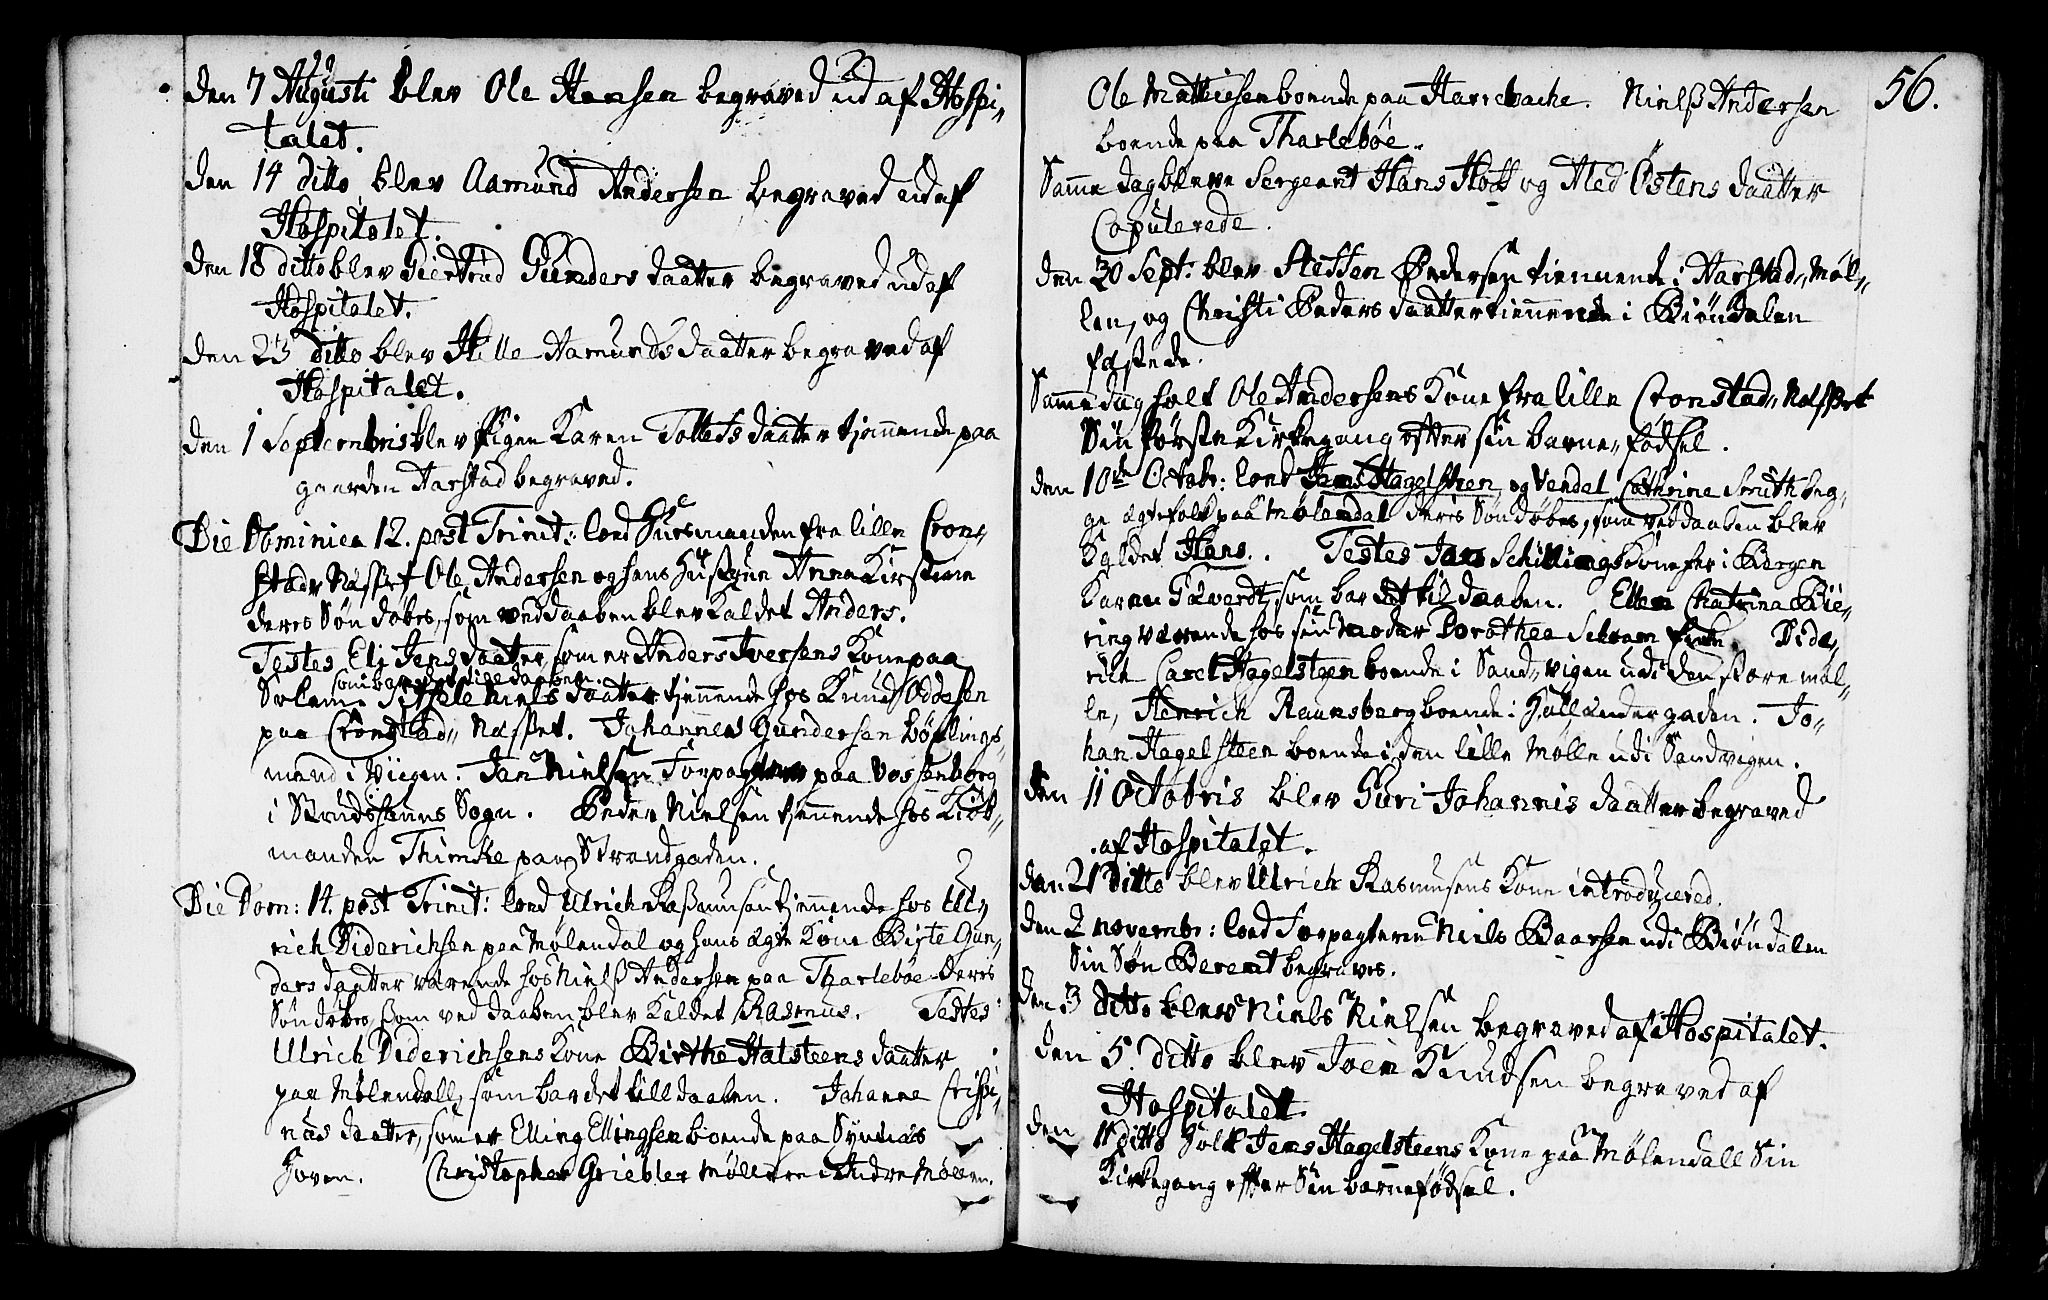 den 7 Augusti blev Ole Hansen begraved ud af Hospi-
talet.
den 14 ditto blev Aamund Andersen begraved ud af
Hospitalet.
den 18 ditto blev Giertrud Gunders daatter begraved ud af
Hospitalet.
den 23 ditto blev Hille Aamunds daatter begraved af
Hospitalet.
den 1 Septembris blev Pigen Karen Tollefs daatter tjennende paa
gaarden Aarstad begraved.
Die Dominica 12. post Trinit: loed Huusmanden fra lille Cron-
stads Næsset Ole Andersen og hans Hustrue Anna Kirstine
deres Søn døbes, som ved daaben blev kaldet Anders.
Testes Eli Jens daatter, som er Anders Iversens Kone paa
som bar det till daaben.
Solem Sithele Niels daatter tjennende hos Knud Oddesen
paa Cronstad-Næsset. Johannes Gundersen Bøs-lings-
mand i Viigen. Jan Nielsen Forpagter paa Vossenborg
i Strudshavns Sogn. Peder Nielsen tjennende hos Kiøb-
manden Thimche paa Strandgaden.
Die Dom: 14. post Trinit: loed Ulrich Rasmusen tjennende hos Ul-
rich Diderichsen paa Mølendal og hans ægte Kone Birte Gun-
ders daatter værende hos Nielß Andersen paa Tharlebøe deres
Søn døbes, som ved daaben blev kaldet Rasmus. Testes:
Ulrich Diderichsens Kone Birthe Halsteens daatter
paa Mølendall, som bar det till daaben. Johanne Crispi-
nus daatter, som er Elling Ellingsen boende paa Synnæs
Hoven. Christopher Griebler Møllere i Andre Møllen.
56.
Ole Mathiesen boende paa Harrebache. Nielß Andersen
boende paa Tharlebøe.
Samme dag bleve Sergeant Hans Hock og Aled Østens daatter
Copulerede.
den 30 Sept: blev Steffen Pedersen tiennende i Aarstad-Møl-
len, og Christi Peders daatter tiennende i Biøndalen
fæstede.
Samme dag holt Ole Andersens Kone fra lille Cronstad-Næsset
Sin første Kirkegang efter sin barne-fødsel.
den 10de Octobr: loed Jens Hagelsteen og Vendel Cathrine Smith beg-
ge ægtefolk paa Mølendal deres Søn døbes, som ved daaben blev
kaldet Hans. Testes Jan Schillings Kone her i Bergen
Karen Govardt, som bar det til daaben. Ellen Chatrina Bie-
ring værende hos sin Moder Dorothea Schram Enke. Dide-
rich Carel Hagelsteen boende i Sand-vigen udi den store møl-
le, Henrich Raunsberg boende i Hollænder gaden. Jo-
han Hagelsteen boende i den lille Mølle udi Sandvigen.
den 11 Octobris blev Guri Johannis daatter begraved
af Hospitalet.
den 21 Ditto blev Ulrich Rasmusens Kone introduceered.
den 2 novembr: loed Forpagteren Niels Baarsen udi Biøndalen
Sin Søn Berent begraves.
den 3 ditto blev Niels Nielsen begraved af Hospitalet.
den 5. ditto blev Joen Knudsen begraved af
Hospitalet.
den 11 ditto holt Jens Hagelsteens Kone paa Mølendall Sin
Kirkegang efter Sin barnefødsel.